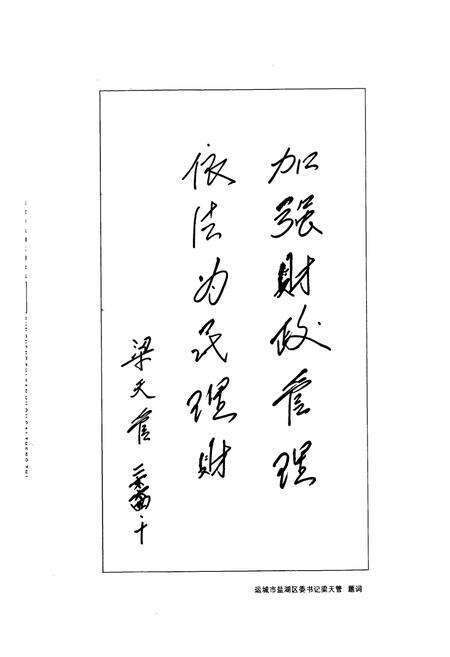 加强财政管理
依法为民理财
梁天管
运城市盐湖区委书记梁天管 题词